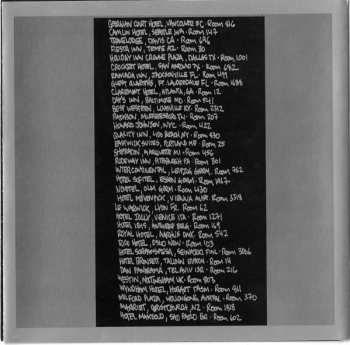 GEORGIAN COURT HOTEL, VANCOUVER BC, ROOM 816
CAMLIN HOTEL, SEATTLE WA · ROOM 147
TRAVELODGE, DAVIS CA · ROOM
FIESTA INN, TEMPE AZ · ROOM 30
HOLIDAY INN CROWNE PLAZA, DALLAS TX · ROOM 1001
CROCKETT HOTEL, SAN ANTONIO TX · ROOM 652
RAMADA INN, JACKSONVILLE FL · ROOM 419
GUEST QUARTERS, FT. LAUDERDALE FL · ROOM 1688
CLAREMONT HOTEL, ATLANTA, GA · ROOM 12
DAYS INN, BALTIMORE MD · ROOM 541
BEST WESTERN, LOUISVILLE KY · ROOM 2312
RADISSON, MURFREESBORO TN · ROOM 207
HOWARD JOHNSON, NYC · ROOM 422
QUALITY INN, BEACH ROOM 330
SUITES, PORTLAND ME · ROOM 25
SHERATON, MARQUETTE MI · ROOM 456
RODEWAY INN, PITTSBURGH PA · ROOM 301
INTERCONTINENTAL, LEIPZIG GERM, ROOM 762
HOTEL SOFITEL, ESSEN GERM · ROOM 1127
NOVOTEL, ULM GERM · ROOM 430
HOTEL MOVENPICK, VIENNA AUST · ROOM 3718
LE WARWICK, LYON FR, ROOM 62
HOTEL JOLLY, VENICE ITA · ROOM 1271
HOTEL IBIS, ANTWERP BELG · ROOM 169
ROYAL HOTEL, AARHUS DMK · ROOM 542
RICA HOTEL, OSLO NRW · ROOM 103
HOTEL, SEINAJOKI FIN · ROOM 306
HOTEL, TALLINN · ROOM 14
DAN PANORAMA, TEL AVIV ISR · ROOM 216
WESTIN, NOTTINGHAM UK · ROOM 803
WYNDHAM HOTEL, HOBART TASM · ROOM 811
MILFORD PLAZA, WOLLONGONG AUSTRAL · ROOM 370
MARRIOT, CHRISTCHURCH, NZ · ROOM 1518
HOTEL MAKSOUD, SAO PAULO BR · ROOM 602